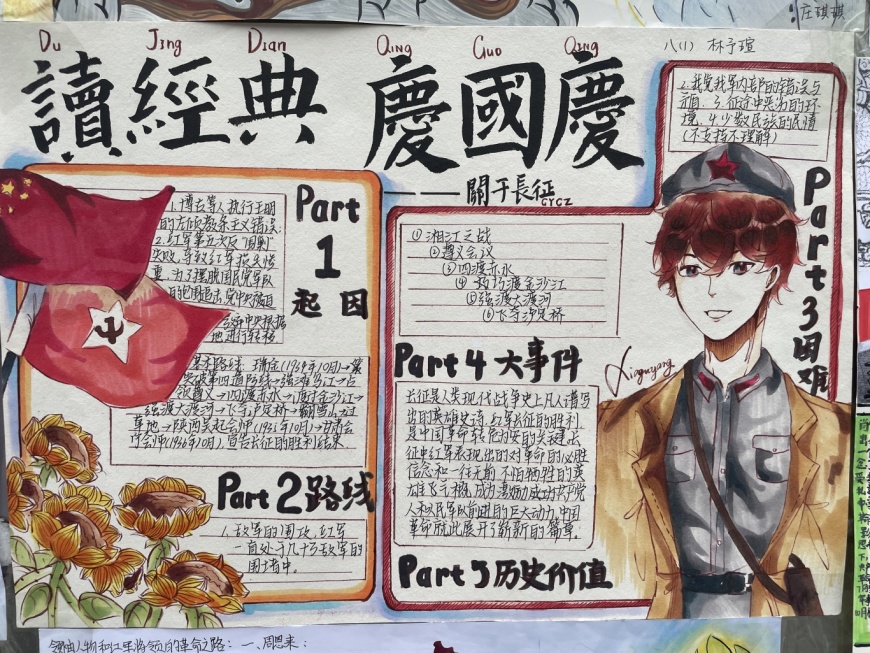 庄琪琪
Du Jing Dian Qing Guo Qing
八(1) 林予瑄
讀經典 慶國慶
——關于長征
CYCZ
Part 1 起因
1.博古等人执行王明
的左倾教条主义错误;
2.红军第五次反"围剿"
失败,导致红军损失惨
重,为了摆脱国民党军队
的包围追击,党中央被迫
地进行转移
路线:瑞金(1934年10月)→
突破四道防线→强渡乌江→占
领遵义→四渡赤水→渡过金沙江→
强渡大渡河→飞夺泸定桥→翻雪山,过
草地→陕西吴起会师(1935年10月)→甘肃会
宁会师(1936年10月),宣告长征的胜利结束
Part 2 路线
1.敌军的围攻,红军
一直处于几十万敌军的
围堵中。
2.我党我军内部的错误与
矛盾.3.征途中恶劣的环
境.4.少数民族的民情
(不支持不理解)
Part 3 困难
①湘江之战
②遵义会议
③四渡赤水
④巧渡金沙江
⑤强渡大渡河
⑥飞夺泸定桥
Part 4 大事件
长征是人类现代战争史上凡人谱写
出的英雄史诗.红军长征的胜利
是中国革命转危为安的关键.长
征中红军表现出的对革命的必胜
信念和一往无前,不怕牺牲的英
雄 成为激励 共产党
人和人民军队前进的巨大动力,中国
革命就此展开了崭新的篇章。
Part 5 历史价值
领袖人物和红军将领的革命之路:一、周恩来: